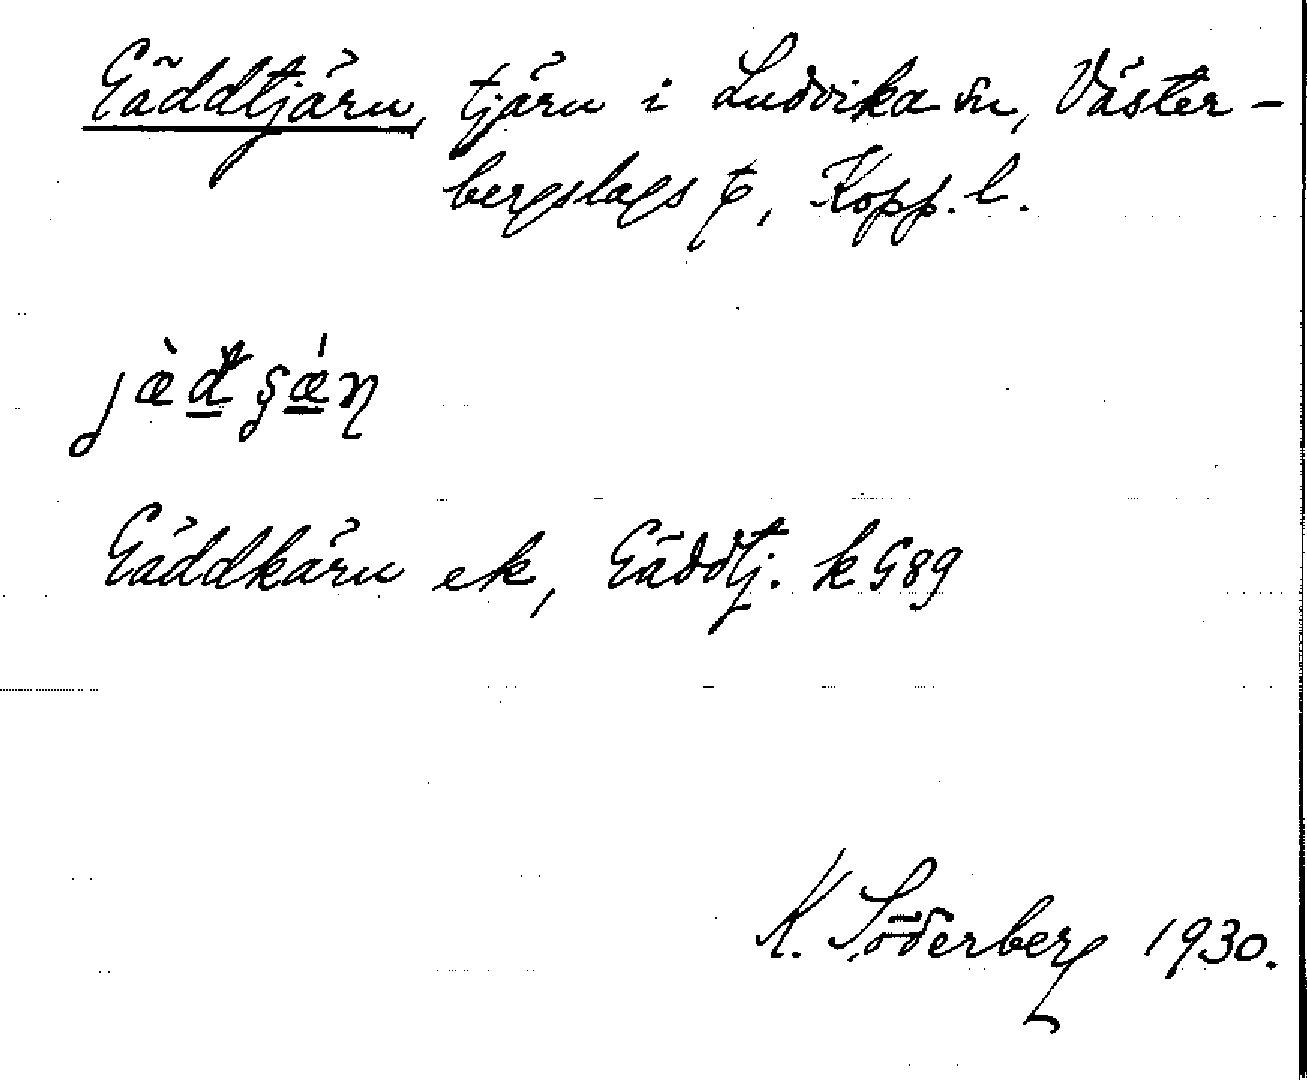 Gäddtjärn, tjärn i Ludvika sn, Väster-
bergslags t, Kopp. l.
Gäddkärn ek, Gäddtj. k G89
K. Söderberg 1930.